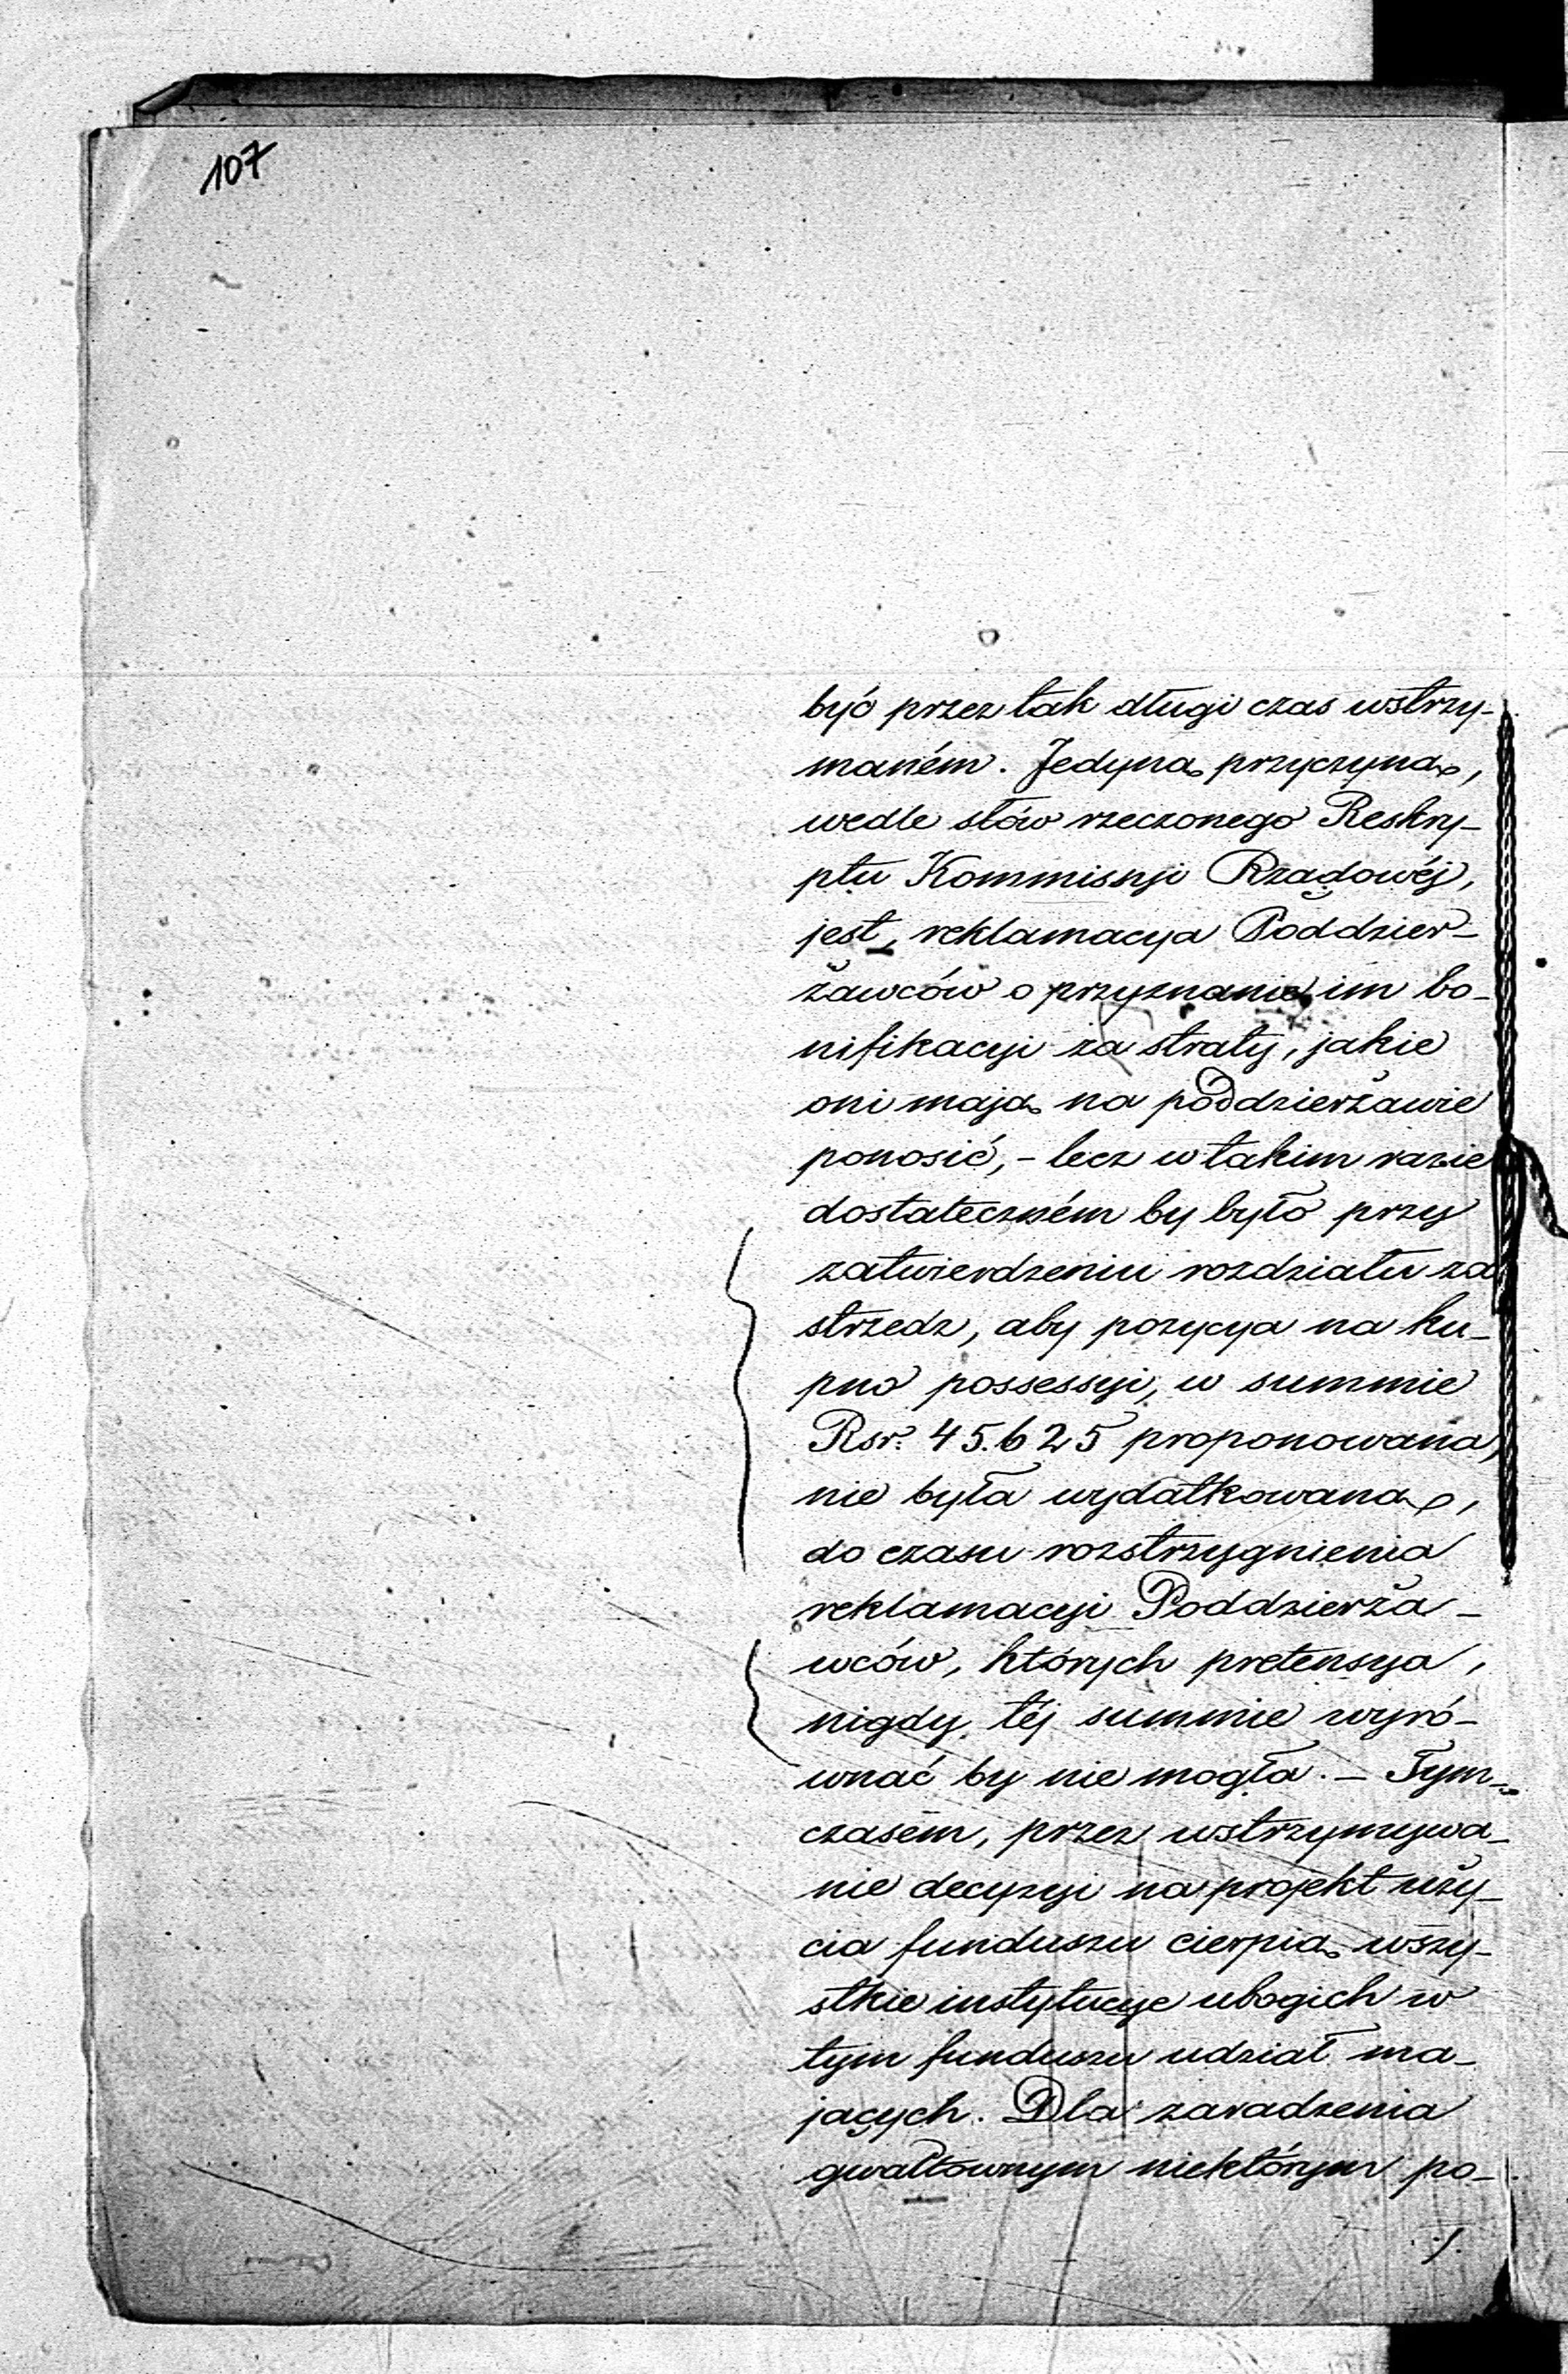 107
być przez tak długi czas wstrzy-
maném. Jedyną przyczyną,
wedle słów rzeczonego Reskry-
ptu Kommissyi Rządowéj,
jest, reklamacya Poddzier-
żawców o przyznanie im bo-
nifikacyi za straty, jakie
oni mają na poddzierżawie
ponosić, - lecz w takim razie
dostateczném by było przy
zatwierdzeniu rozdziału za
strzedz, aby pozycya na ku-
pno possessyi, w summie
Rsr. 45.625 proponowana,
nie była wydatkowaną,
do czasu rozstrzygnienia
reklamacyi Poddzierża-
wców, których pretensya,
nigdy téj summie wyró-
wnać by nie mogła. - Tym-
czasem, przez wstrzymywa-
nie decyzyi na projekt uży-
cia funduszu cierpią wszy-
stkie instytucye ubogich w
tym funduszu udział ma-
jących. Dla zaradzenia
gwałtownym niektórym po-
./.